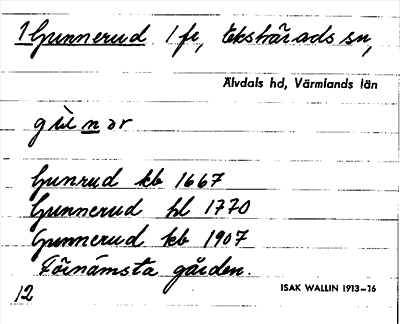 1 Gunnerud 1 fr, Ekshärads sn,
Älvdals hd, Värmlands län
Gunrud kb 1667
Gunnerud hl 1770
Gunnerud kb 1907
Förnämsta gården.
12 ISAK WALLIN 1913-16